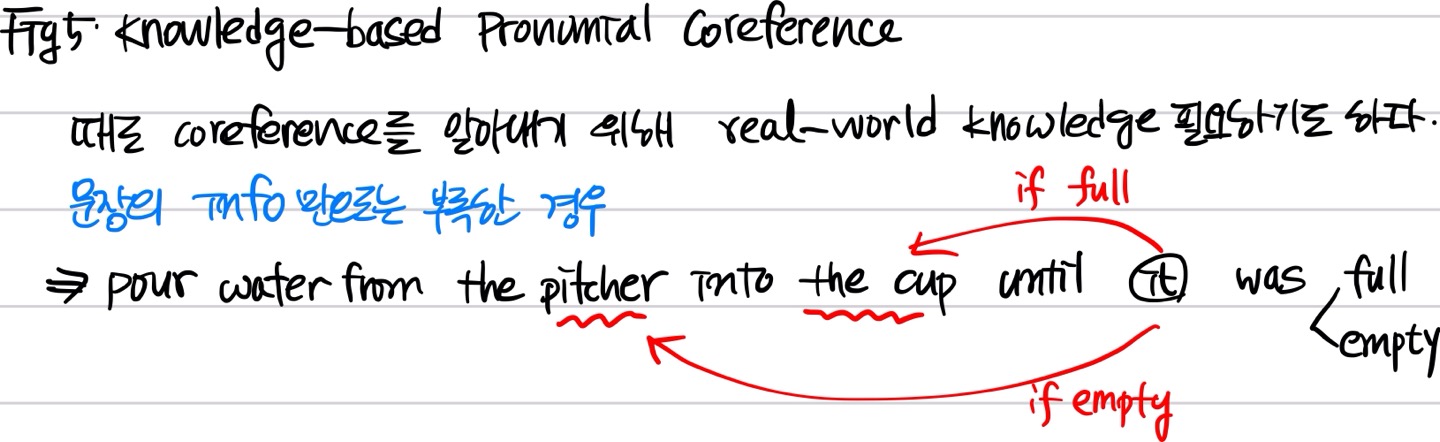 Fig5. Knowledge-based Pronumtal Coreference
때로 coreference를 알아내기 위해 real-world knowledge 필요하기도 하다.
문장의 Info 만으로는 부족한 경우
if full
⇒ pour water from the pitcher into the cup until it was full
empty
if empty